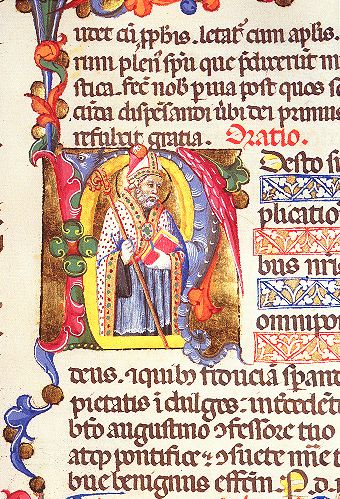 udet cū pphis. letat' cum aplis.
rum plen' spū que pdixerūt mi
stica. fec' nob' puia post quos se
cūda dispēsandi ubi dei primus
refulsit gratia. Oratio.
desto su
plicatio
bus nris
omnipo
deus. et quibus fiduciā sperant
pietatis īdulges. intcedent
bto augustino cōfessore tuo
atqz pontifice. et suete mie t
bue benignus effctm. P. d.